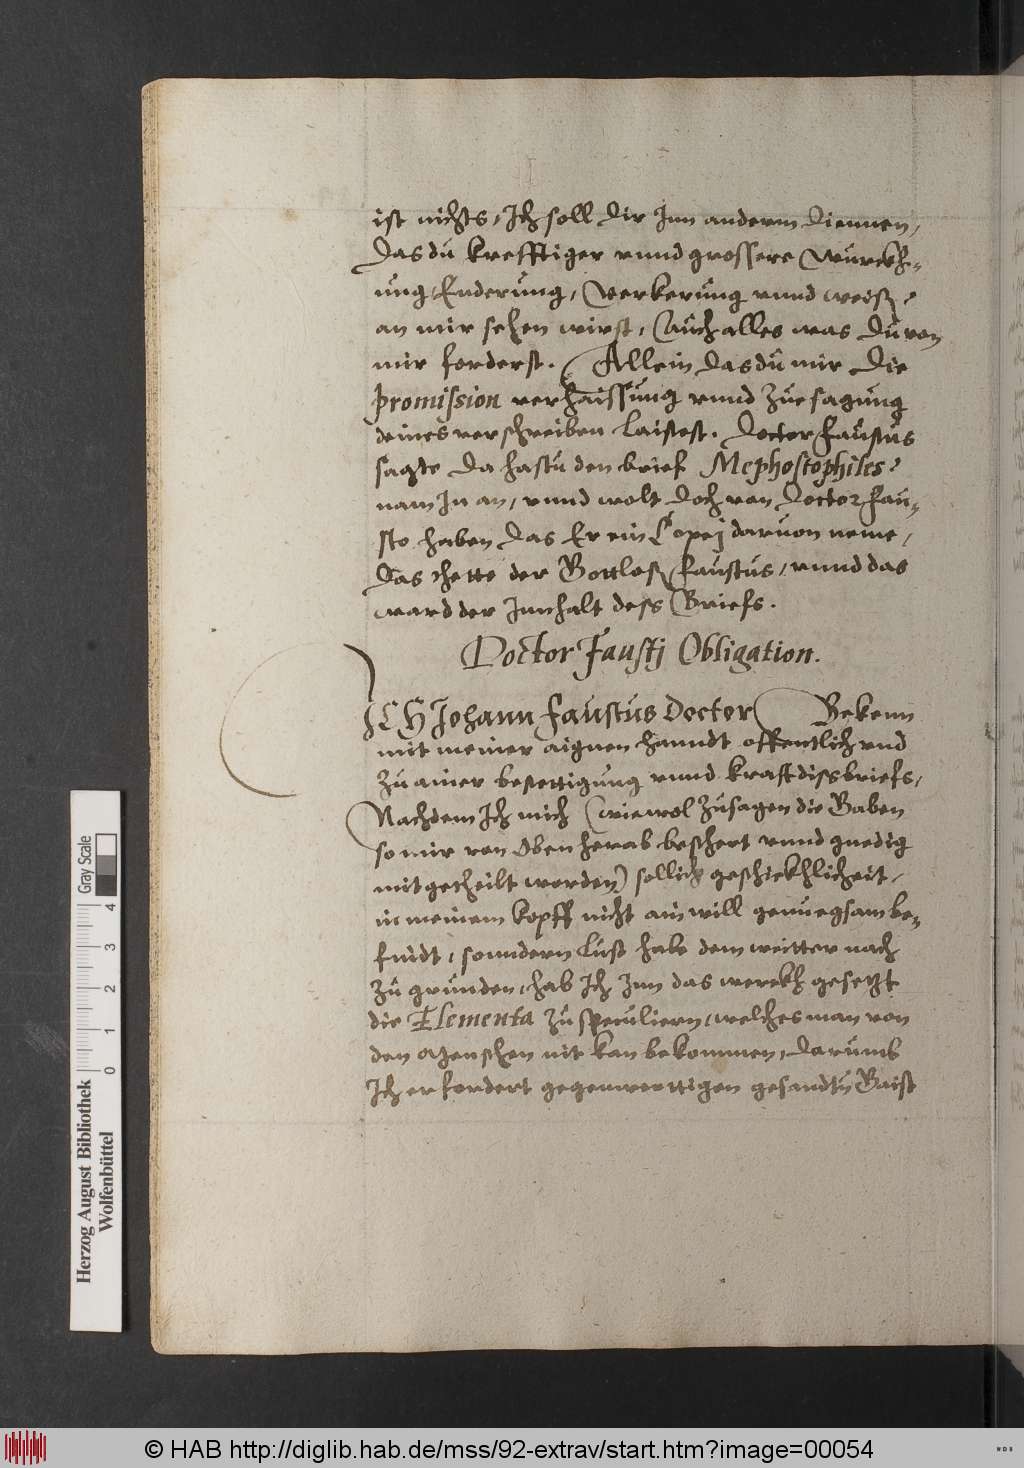 ist nichts, Ich soll dir Inn anderm diennen,
das du krefftiger vnnd grossere Würckh-
ung, Enderung, Verkerung vnnd weiß
an mir sehen wirst, Auch alles was du von
mir forderst. Allein das dü mir die
promission verhaissung vnnd Züesagung
deines verschreiben laistest. Doctor Faustus
sagte da hastu den brief Mephostophiles
nam In an, vnnd wolt doch von Doctor Fau-
sto haben das Er ein Copej daruon neme,
das thette der Gottloß Faustus, vnnd das
ward der Innhalt dess Briefs.
Doctor Faustj Obligation.
ICH Johann Faustus Doctor Bekenn
mit meiner aignen hanndt offentlich vnd
zü ainer besettigung vnnd krafft diss briefs,
Nachdem Ich mich (wiewol Zusagen die Gaben
so mir von Oben herab beschert vnnd gnedig
mitgetheilt worden) sollich geschickhlicheit,
in meinem kopff nicht ain will genuegsam be-
findt, sonndern lust habe dem weitter nach
zü gründen, hab Ich Inn das werckh gesetzt
die Elementa zü speculiern, welches man von
den Menschen nit kan bekommen, darumb
Ich erfordert gegenwerttigen gesandtn Gaist
Herzog August Bibliothek
Wolfenbüttel
0 1 2 3 4
Gray Scale
© HAB http://diglib.hab.de/mss/92-extrav/start.htm?image=00054
WDB